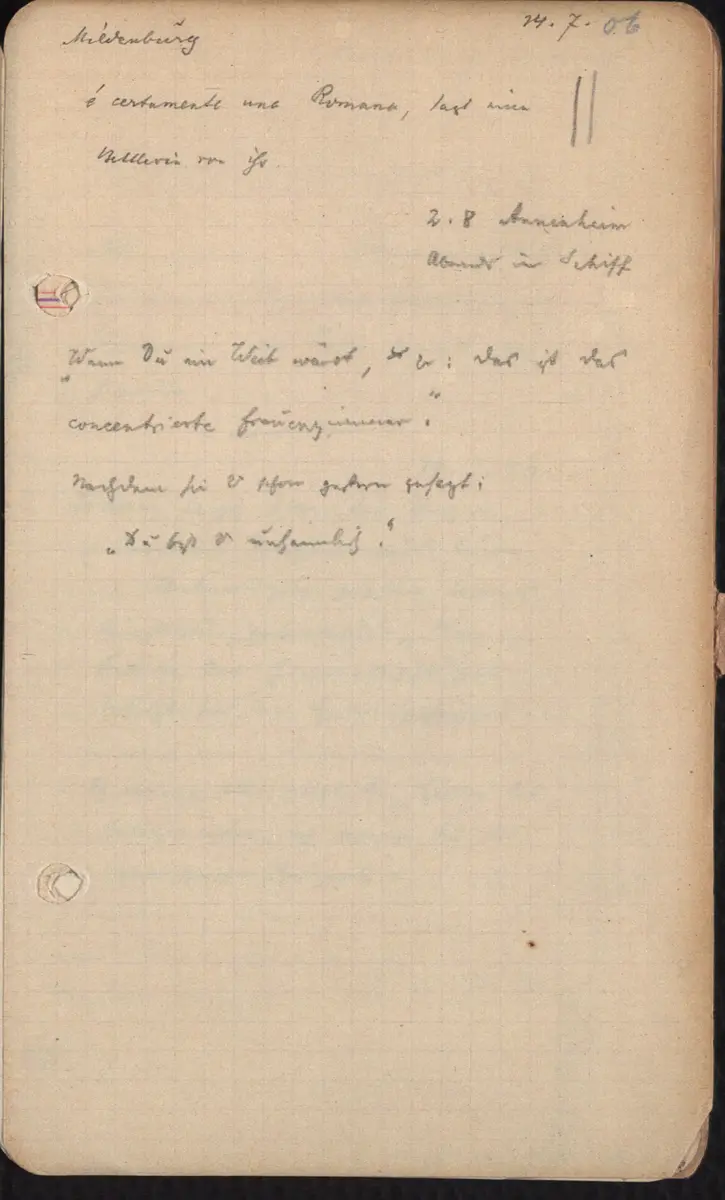 Mildenburg
14. 7. 06
é certamente una Romana, sagt eine
Bettlerin von ihr.
2. 8 Annenheim
Abends im Schiff
„Wenn Du ein Weib wärst, : das ist das
concentrierte Frauenzimmer."
Nachdem sie schon gestern gesagt:
„Du bist unheimlich."